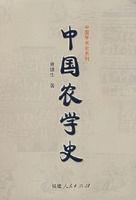 中国学术史系列
中国农学史
曾雄生 著
福建人民出版社